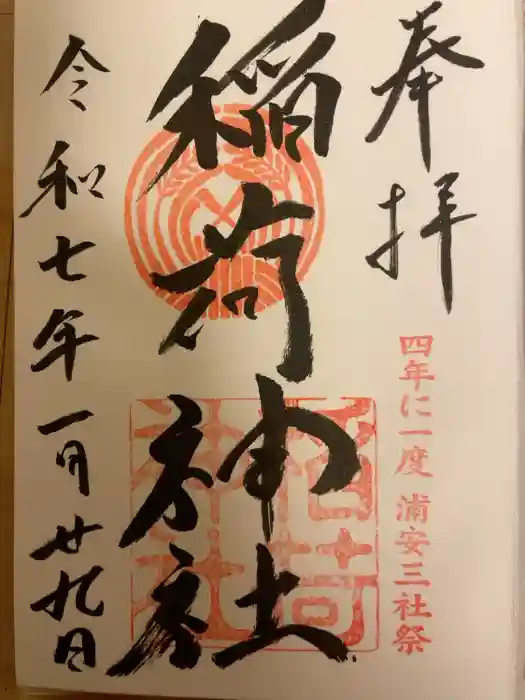 奉拝
四年に一度 浦安三社祭
稲荷神社
稲荷神社
令和七年一月廿九日